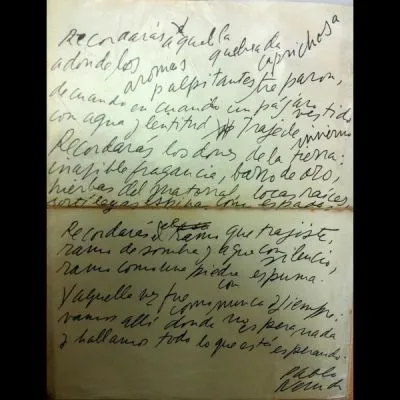 Recordarás aquella quebrada caprichosa
a donde los aromas palpitantes treparon,
de cuando en cuando un pájaro vestido
con agua y lentitud traje de invierno
Recordarás los dones de la tierra:
irascible fragancia, barro de oro,
hierbas del matorral, locas raíces,
sortílegas espinas como espadas.
Recordarás el ramo que trajiste,
ramo de sombra y agua con silencio,
ramo como una piedra con espuma.
Y aquella vez fue como nunca y siempre:
vamos allí donde no espera nada
y hallamos todo lo que está esperando.
Pablo
Neruda